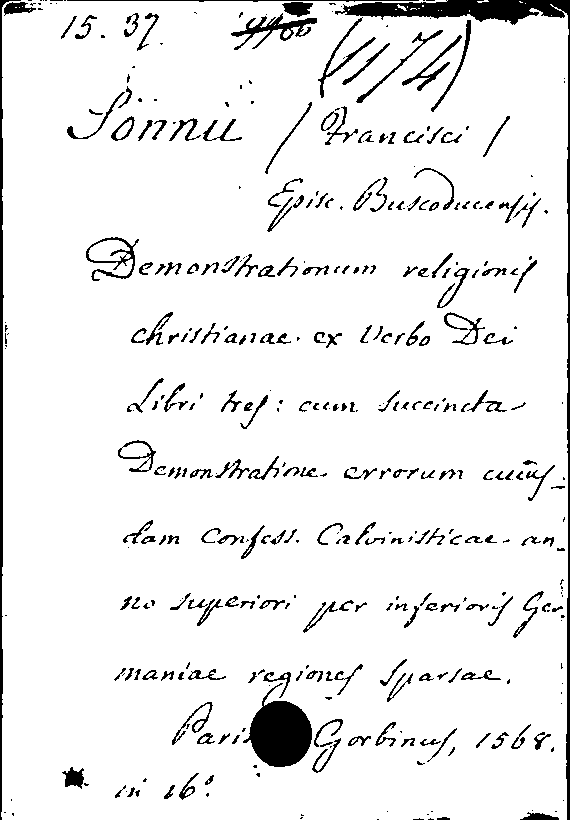 15. 37. (1174)
Sonnii / Francisci /
Episc. Buscoducensis.
Demonstrationum religionis
christianae ex Verbo Dei
Libri tres: cum succincta
Demonstratione errorum cuius-
dam Confess. Calvinisticae an-
no superiori per inferioris Ger-
maniae regiones sparsae.
Paris Gorbinus, 1568.
in 16°.